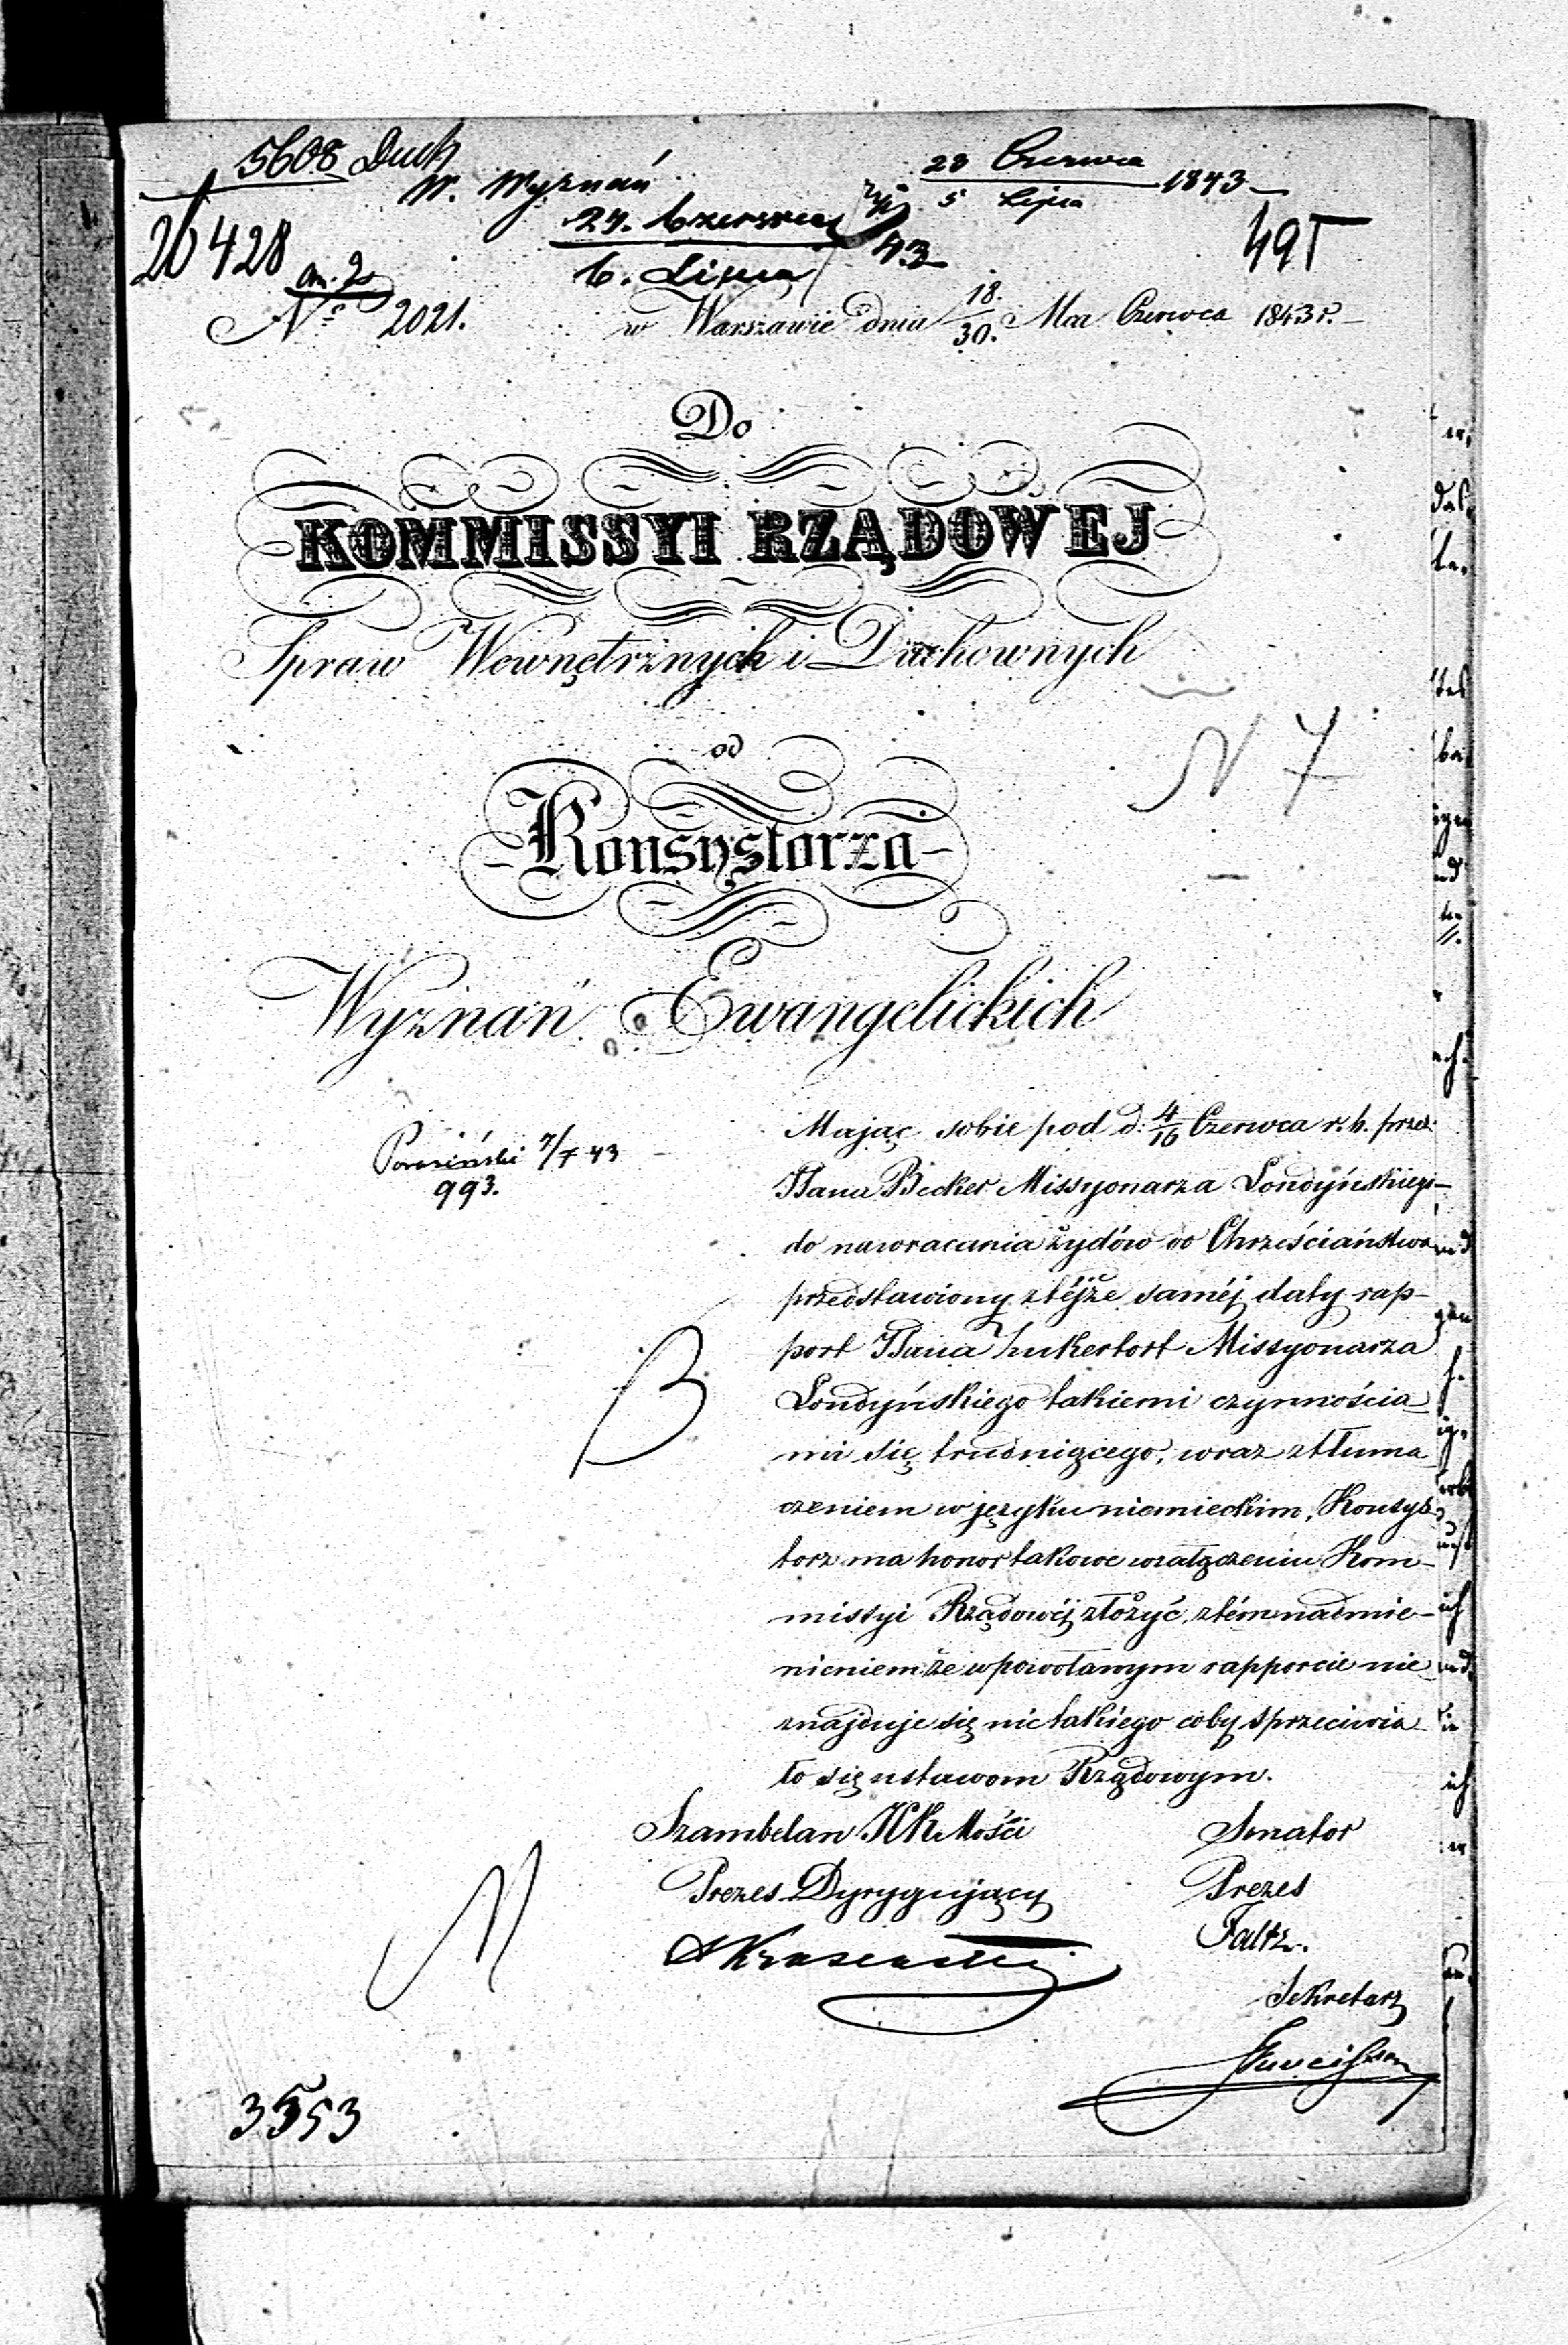 5608 Duch
W. Wyznań
23 Czerwca
5 Lipca
1843
26428
24. Czerwca
6. Lipca
43
495
an. 2
No 2021.
w Warszawie dnia 18./30. Mca Czerwca 1843 r.
Do
KOMMISSYI RZĄDOWEJ
Spraw Wewnętrznych i Duchownych
od
N 7
Konsystorza
Wyznań Ewangelickich
Porasiński 7/7 43
993.
Mając sobie pod d: 4/16 Czerwca r. b. przez
Pana Becker Missyonarza Londyńskiego
do nawracania żydów do Chrześciaństwa
przedstawiony ztéjże saméj daty rap-
port Pana Zukertort Missyonarza
Londyńskiego takiemi czynnościa-
mi się trudniącego, wraz ztłuma-
czeniem w języku niemieckim, Konsys-
torz ma honor takowe wzałączeniu Kom-
missyi Rządowéj złożyć, ztém nadmie-
nieniem że wpowołanym rapporcie nie
znajduje się nic takiego coby sprzeciwia-
ło się ustawom Rządowym.
B
Szambelan JKMości
Prezes Dyrygujący
Senator
Prezes
Faltz.
Sekretarz
3553